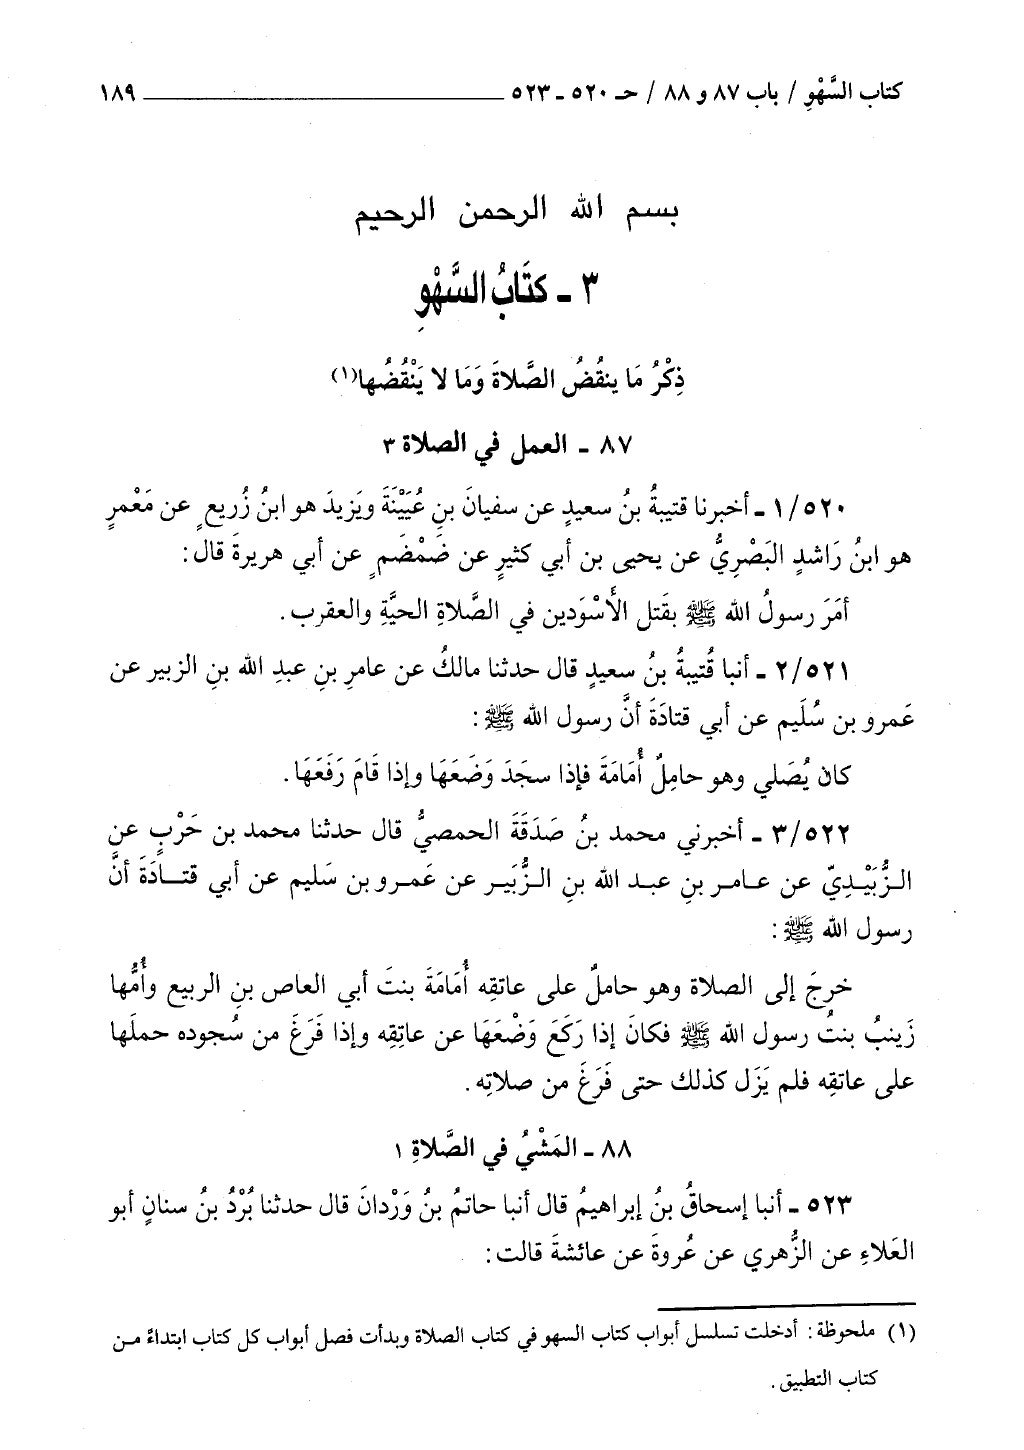 كتاب السَّهْوِ / باب ٨٧ و ٨٨ / حـ ٥٢٠ ـ ٥٢٣ ١٨٩
بسم الله الرحمن الرحيم
٣ ـ كتَابُ السَّهْوِ
ذِكْرُ مَا ينقُضُ الصَّلاةَ وَمَا لا يَنْقُضُها(١)
٨٧ ـ العمل في الصلاة ٣
١/٥٢٠ ـ أخبرنا قتيبةُ بنُ سعيدٍ عن سفيانَ بنِ عُيَيْنَةَ ويَزيدَ هو ابنُ زُريعٍ عن مَعْمرٍ
هو ابنُ رَاشدٍ البَصْرِيُّ عن يحيى بن أبي كثيرٍ عن ضَمْضَمٍ عن أبي هريرةَ قال:
أمَرَ رسولُ الله ﷺ بقَتل الأَسْوَدين في الصَّلاةِ الحيَّةِ والعقرب.
٢/٥٢١ ـ أنبا قُتيبةُ بنُ سعيدٍ قال حدثنا مالكُ عن عامرِ بنِ عبدِ الله بنِ الزبير عن
عَمرو بن سُلَيم عن أبي قتادَةَ أنَّ رسول الله ﷺ:
كان يُصَلي وهو حاملٌ أُمَامَةَ فإذا سجَدَ وَضَعَهَا وإذا قامَ رَفَعَهَا.
٣/٥٢٢ ـ أخبرني محمد بنُ صَدَقَةَ الحمصيُّ قال حدثنا محمد بن حَرْبٍ عن
الزُّبَيْدِيّ عن عامر بنِ عبد الله بنِ الزُّبَير عن عَمرو بن سَليم عن أبي قتادَةَ أنَّ
رسول الله ﷺ:
خرجَ إلى الصلاة وهو حاملٌ على عاتقِه أُمَامَةَ بنتَ أبي العاص بنِ الربيع وأُمُّها
زَينبُ بنتُ رسول الله ﷺ فكانَ إذا رَكَعَ وَضْعَهَا عن عاتِقِه وإذا فَرَغَ من سُجوده حملَها
على عاتقِه فلم يَزَل كذلك حتى فَرَغَ من صلاتِه.
٨٨ ـ المَشْيُ في الصَّلاةِ ١
٥٢٣ ـ أنبا إسحاقُ بنُ إبراهيمُ قال أنبا حاتمُ بنُ وَرْدانَ قال حدثنا بُرْدُ بنُ سنانٍ أبو
العَلاءِ عن الزُّهري عن عُروةَ عن عائشةَ قالت:
(١) ملحوظة: أدخلت تسلسل أبواب كتاب السهو في كتاب الصلاة وبدأت فصل أبواب كل كتاب ابتداءً من
كتاب التطبيق.